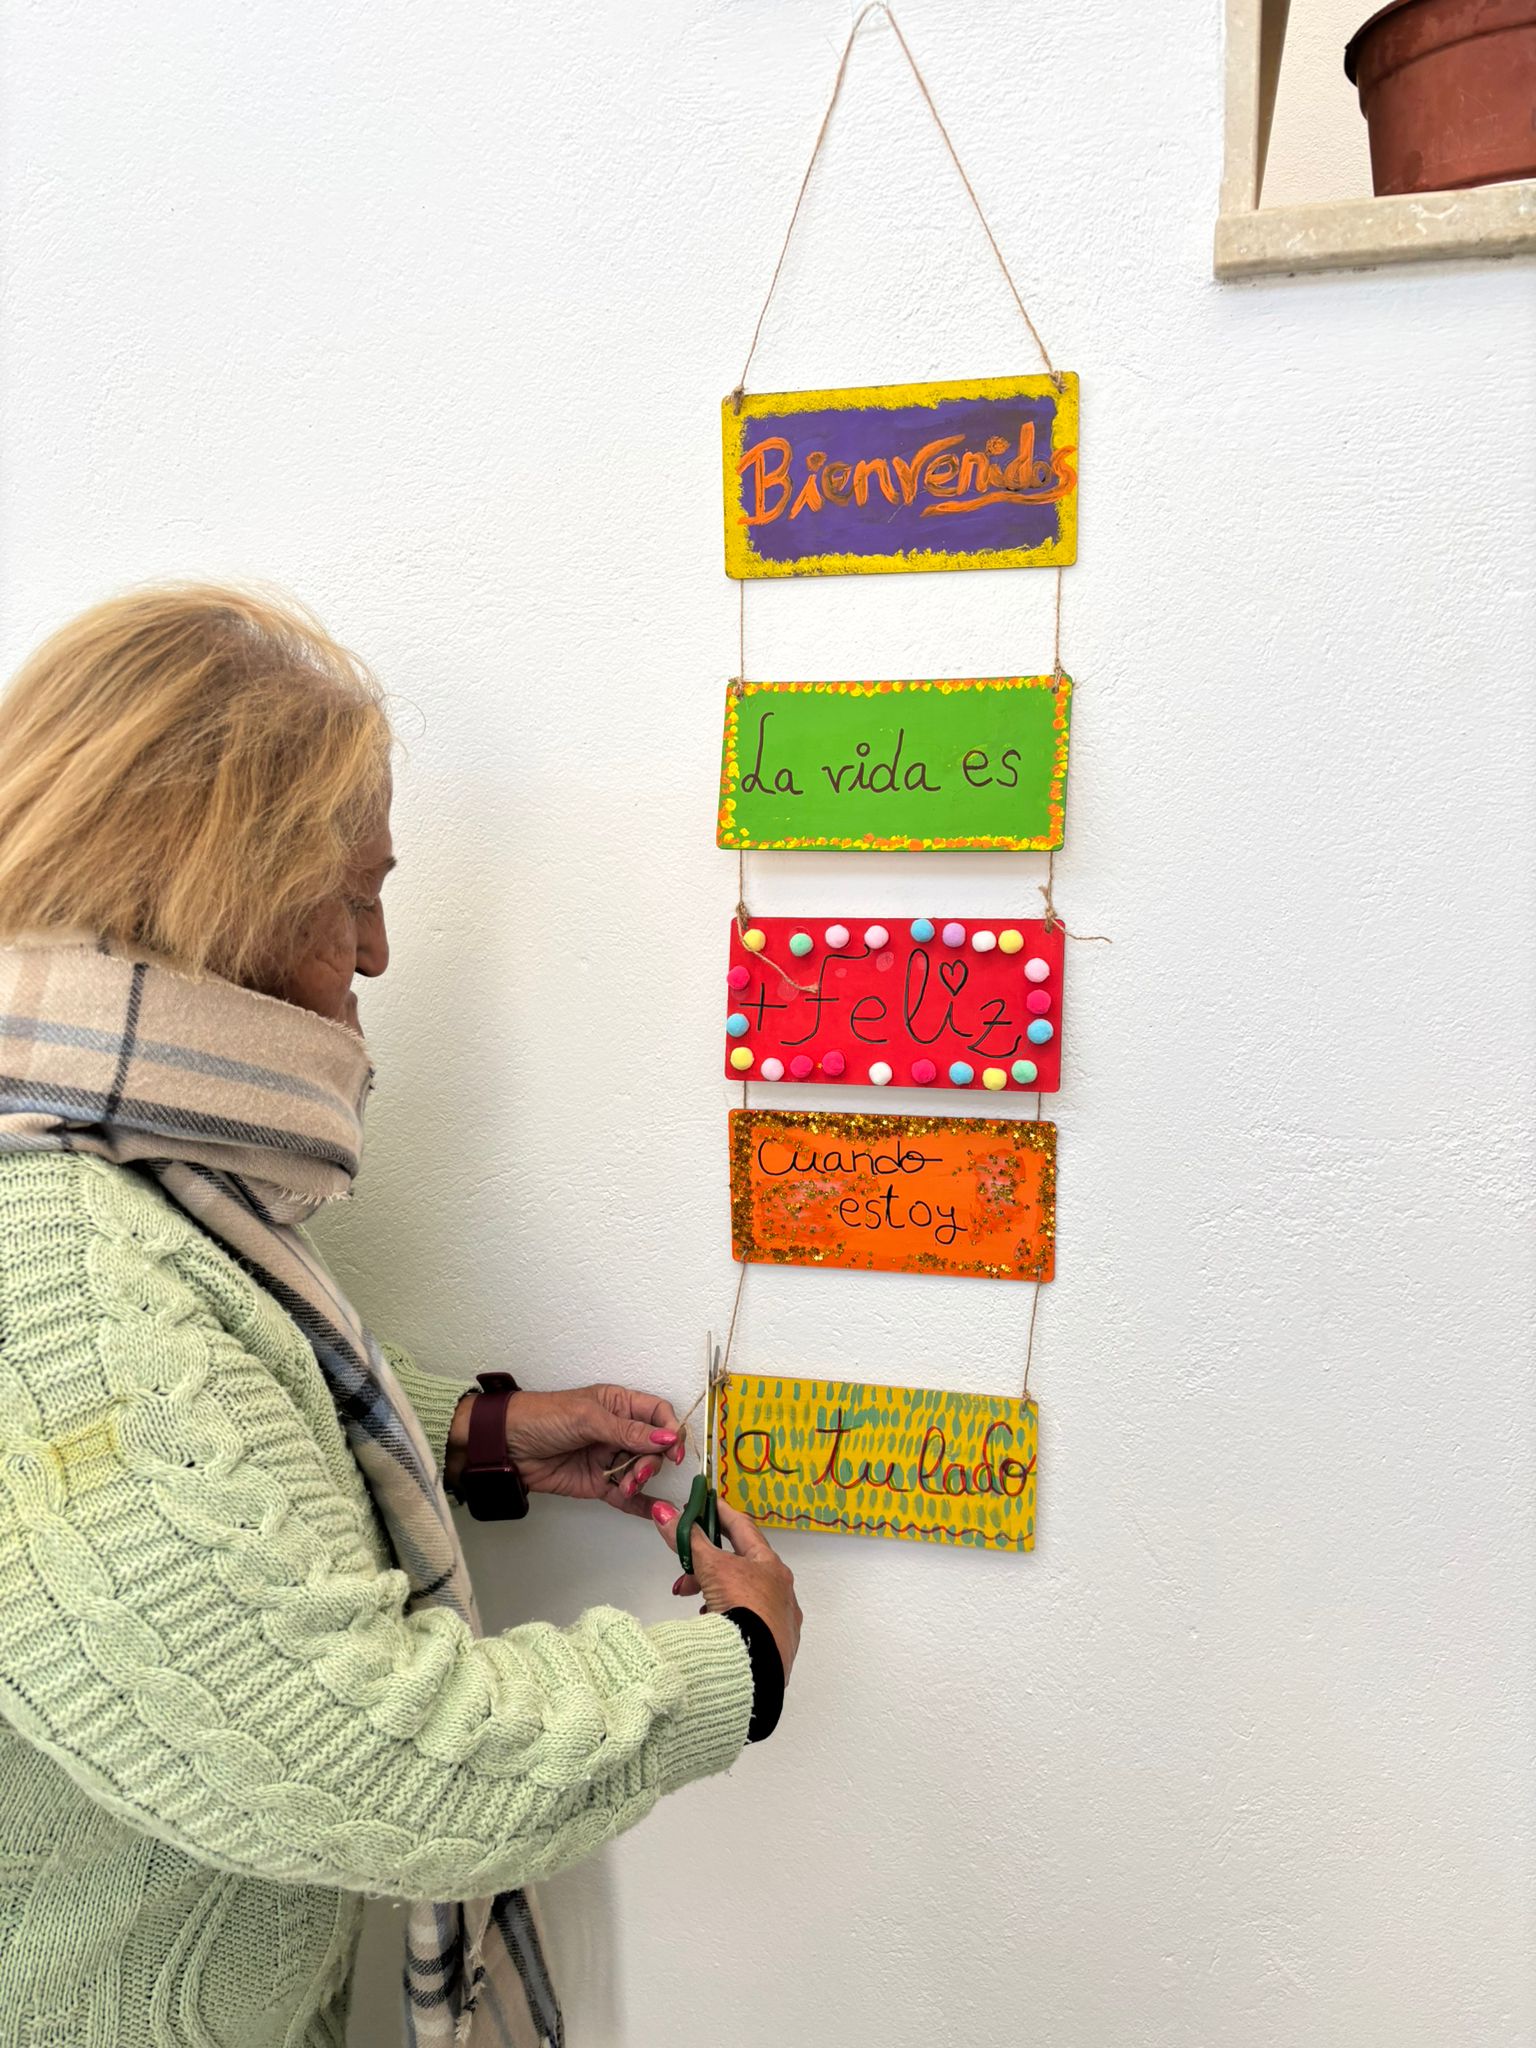 Bienvenidos
La vida es
+ Feliz
Cuando
estoy
a tu lado